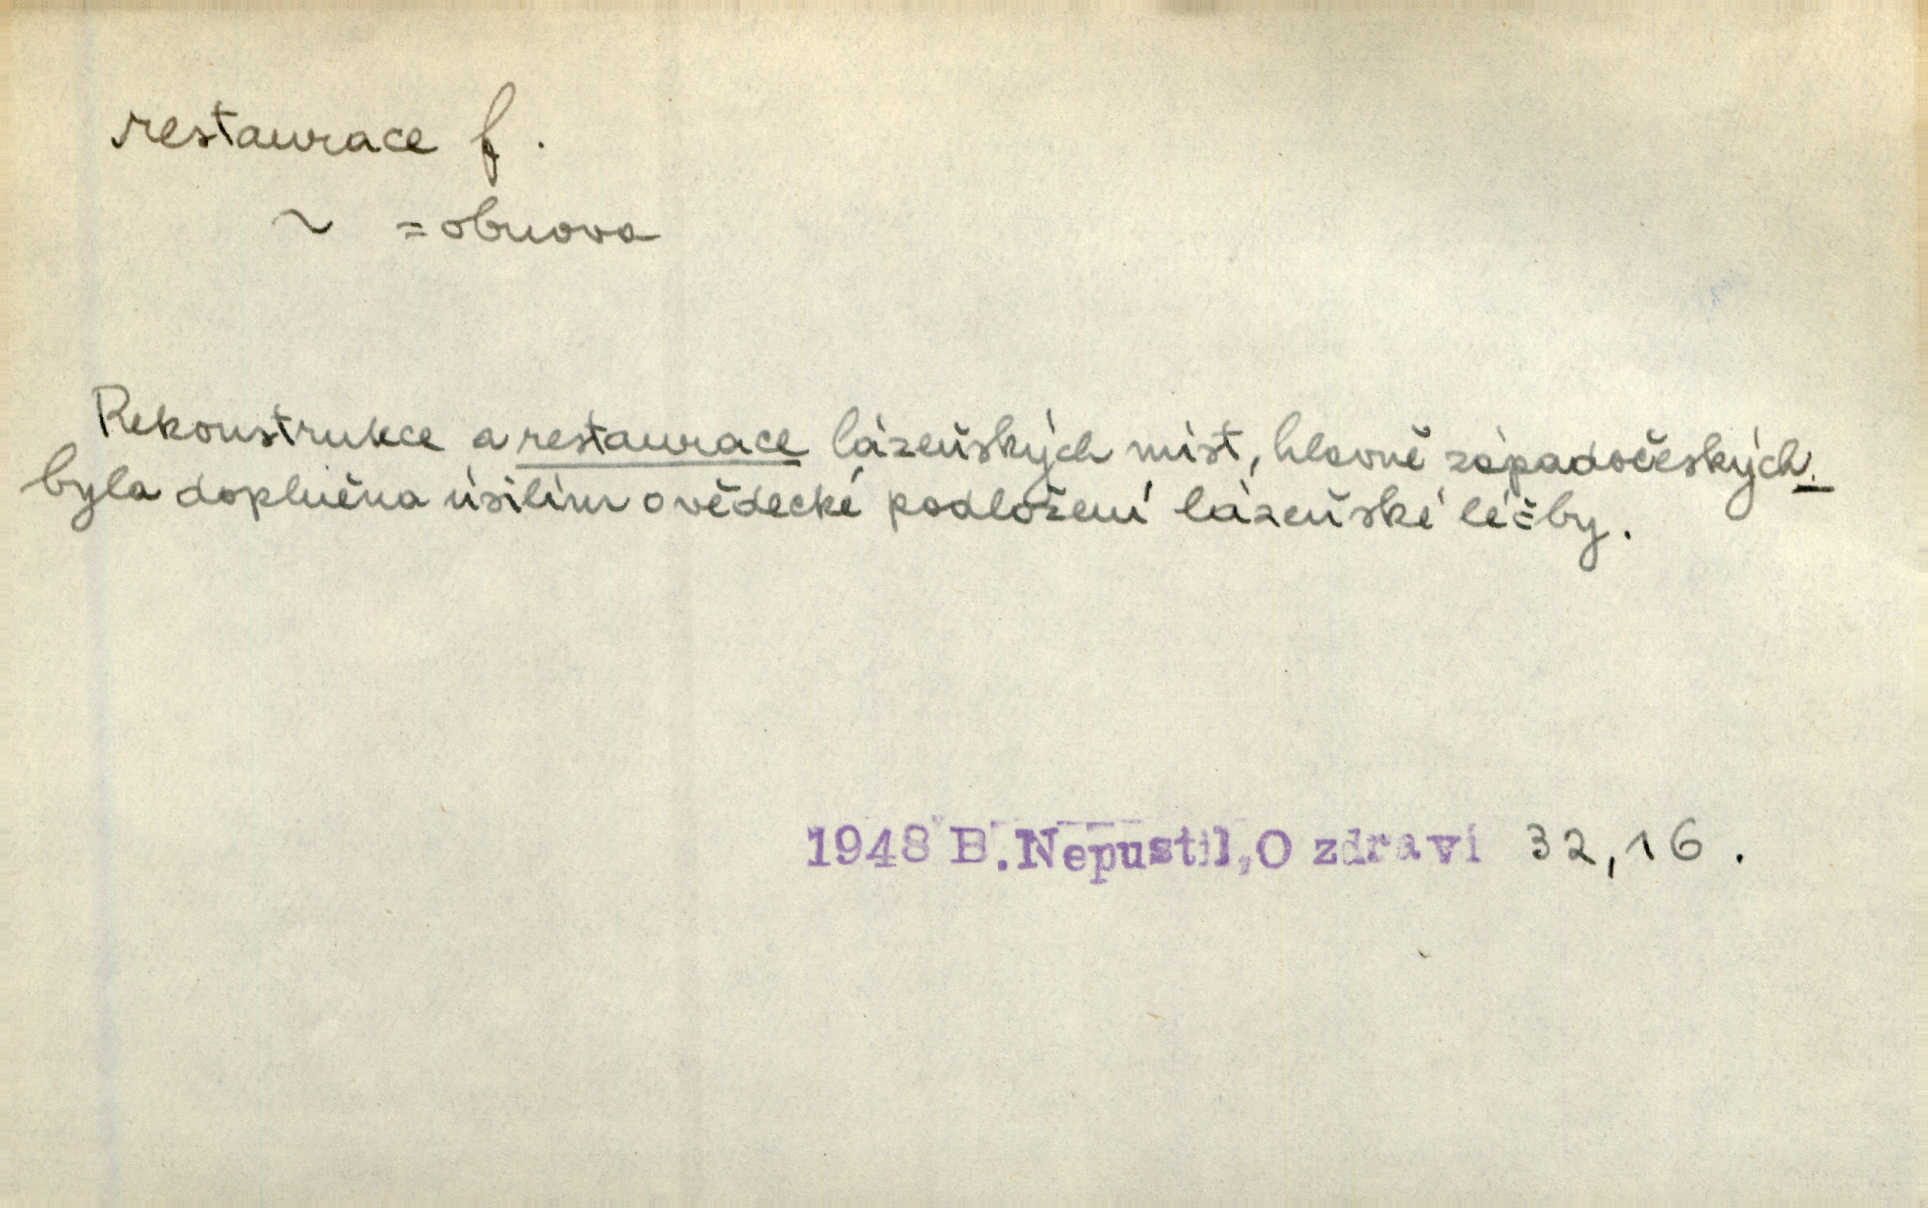 restaurace f.
~ = obnova
Rekonstrukce a restaurace lázeňských míst, hlavně západočeských.
byla doplněna úsilím o vědecké podložení lázeňské léčby.
1948 B. Nepustil, O zdraví 32,16.